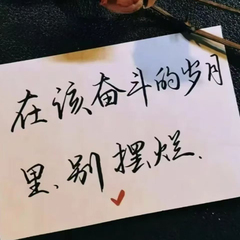 在该奋斗的岁月
里、别摆烂、